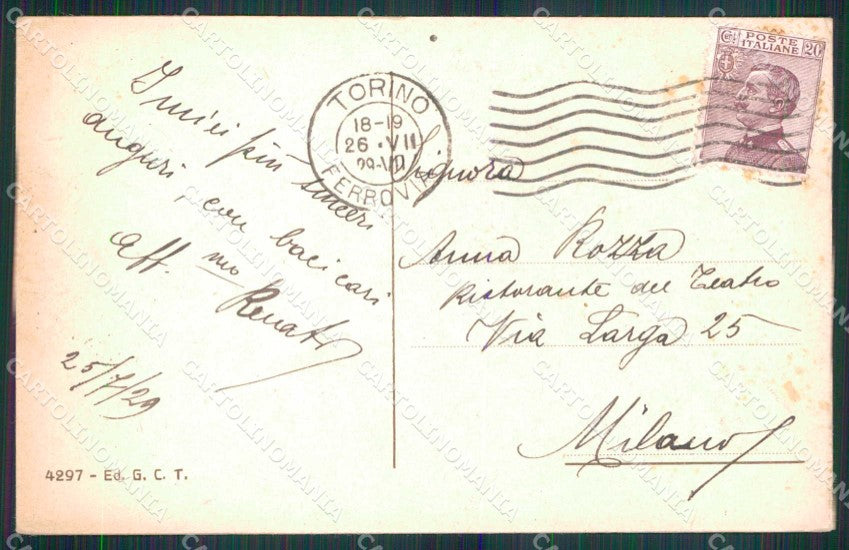 I miei più sinceri
auguri, con baci cari
Aff.mo
Renato
25/7/29
4297 - Ed. G. C. T.
TORINO
18-19
26 • VII
FERROVIA
Cent. POSTE 20
ITALIANE
Signora
Anna Rozza
Ristorante del Teatro
Via Larga 25
Milano
CARTOLINOMANIA